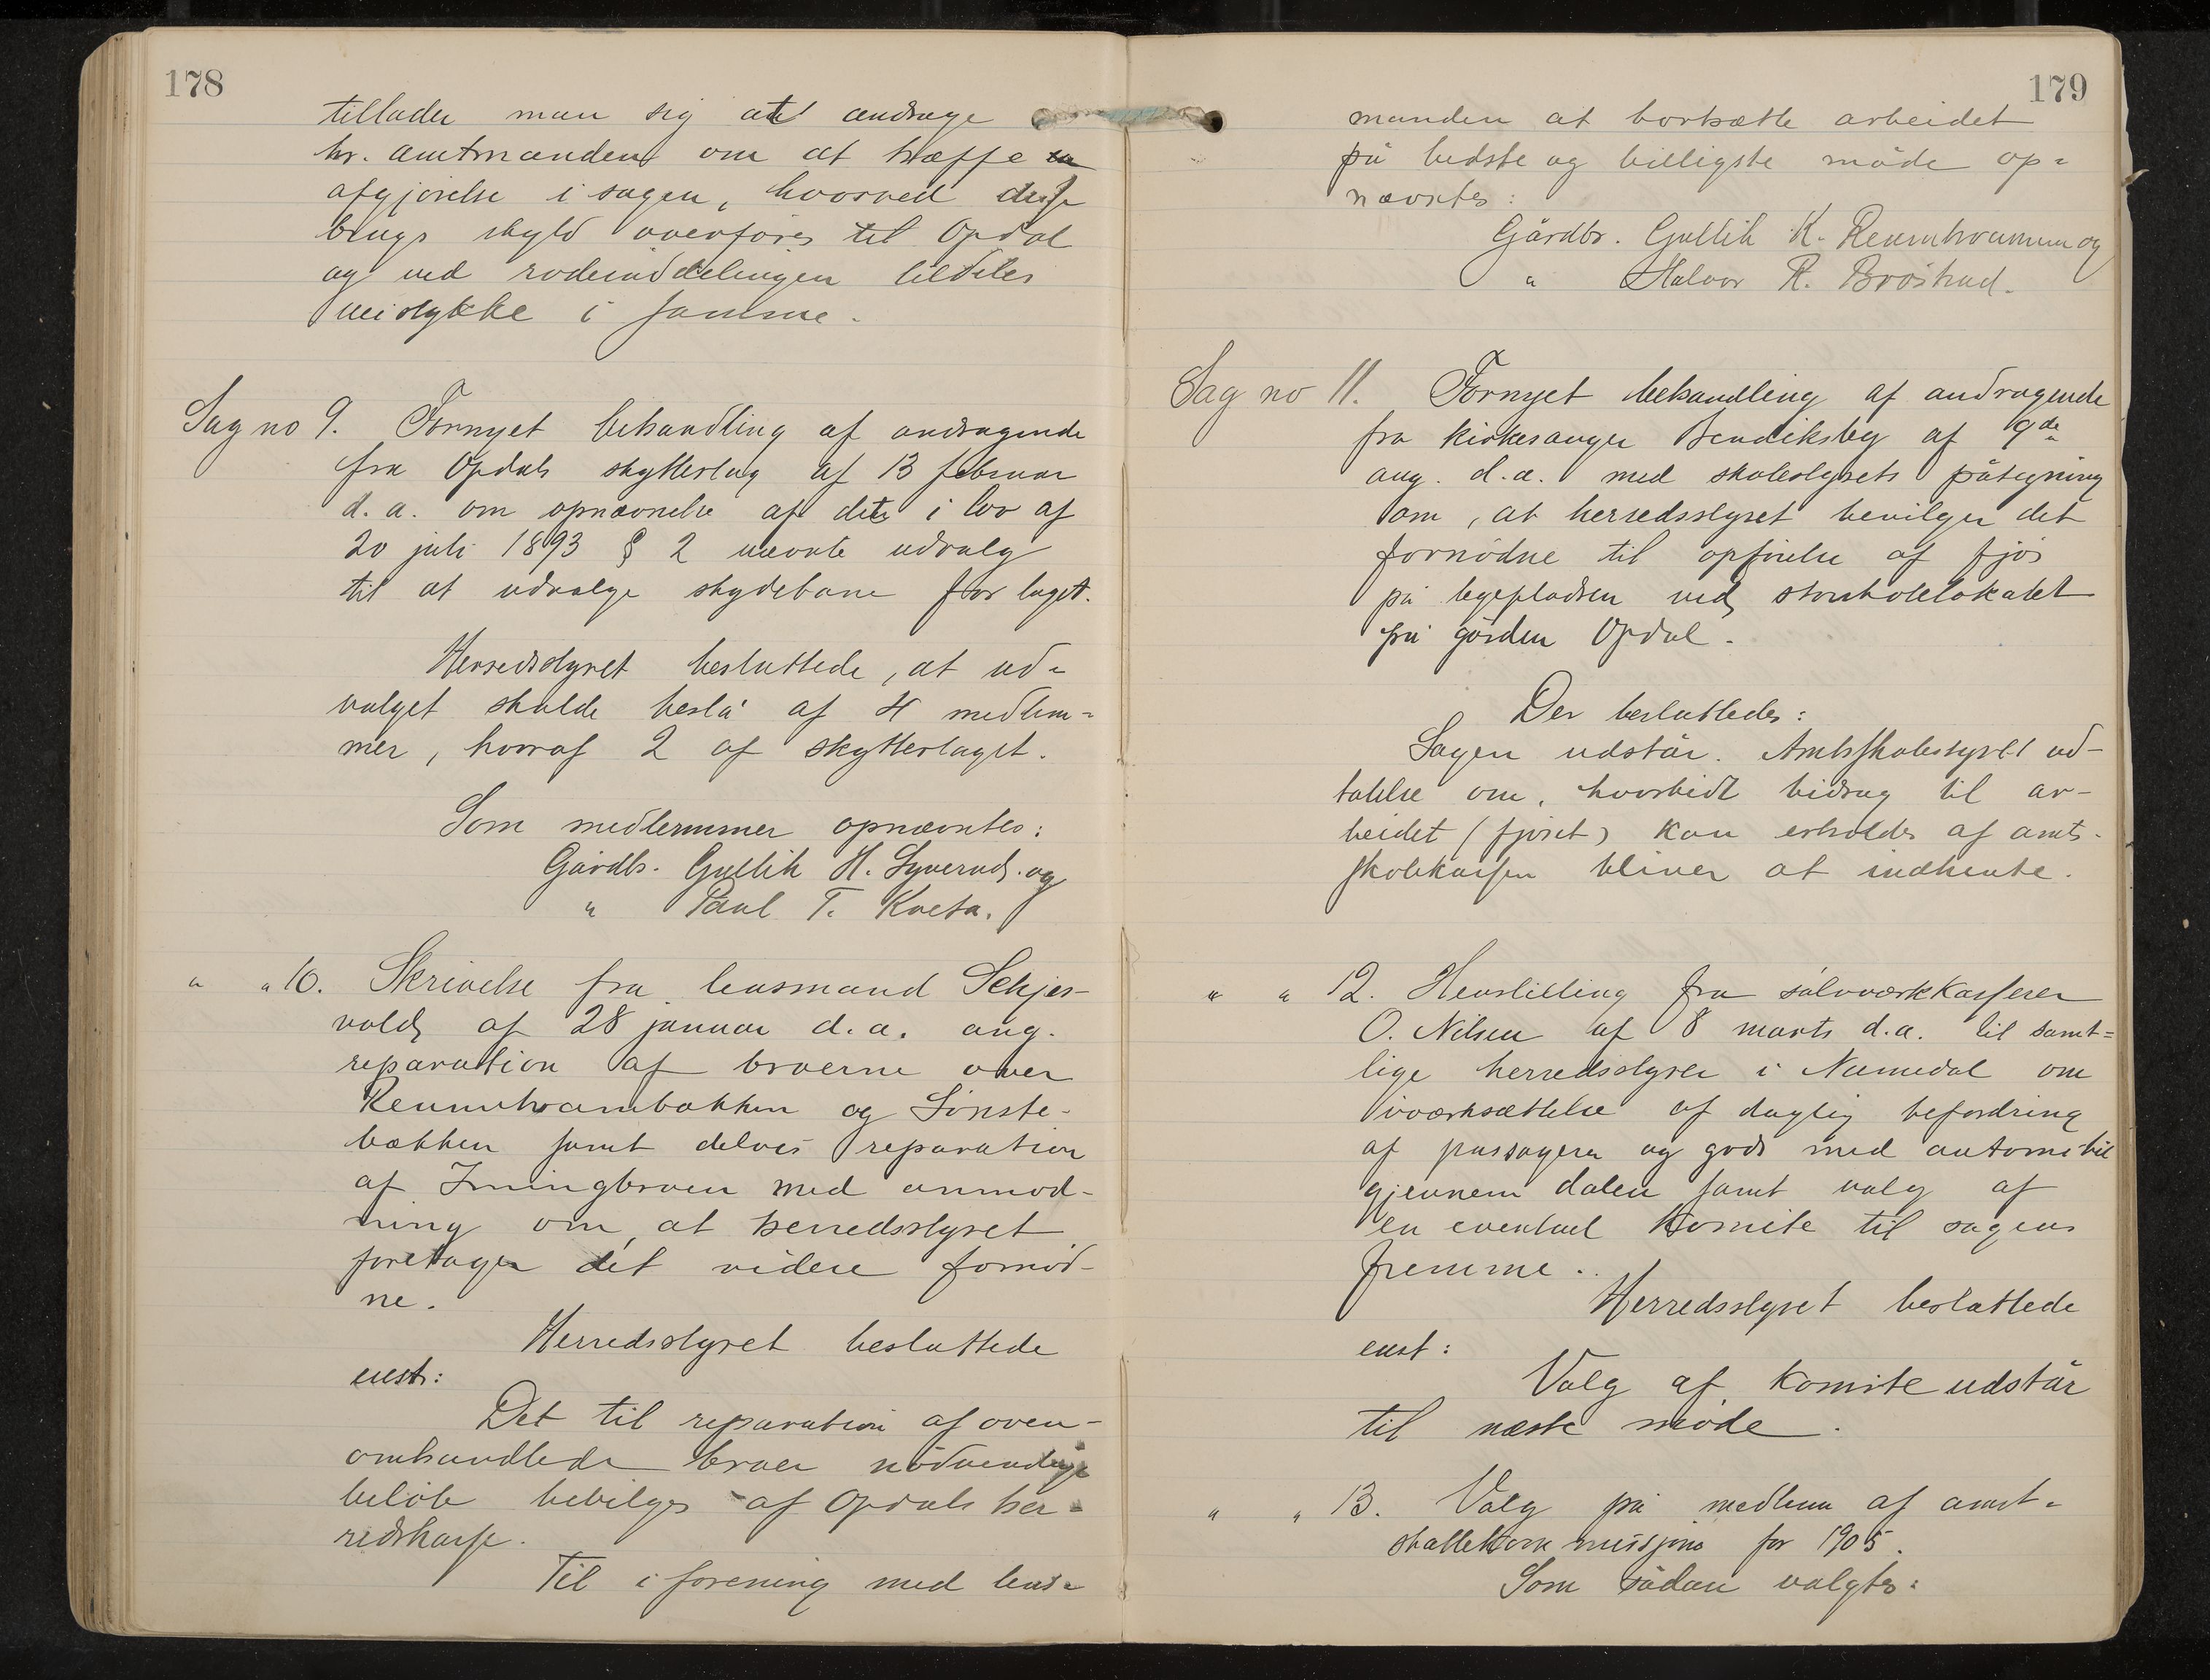 178
tillader man sig at andrage
hr. amtmanden om at træffe
afgjörelse i sagen, hvorved disse
brugs skyld overföres til Opdal
og ved rodeinddelingen tildeles
veistykke i samme.
Sag no 9. Fornyet behandling af andragende
fra Opdals skytterlag af 13 februar
d. a. om opnævnelse af det i lov af
20 juli 1893 § 2 nævnte udvalg
til at udvælge skydebane for laget.
Herredsstyret besluttede, at ud-
valget skulde bestå af 4 medlem-
mer, hvoraf 2 af skytterlaget.
Som medlemmer opnævntes:
Gårdbr. Gullik H. Syverud og
" Paul T. Kveta.
" " 10. Skrivelse fra lensmand Schjes-
vold af 28 januar d. a. ang.
reparation af broerne over
Rennehvambækken og Sönste-
bækken samt delvis reparation
af Imingbroen med anmod-
ning om at herredsstyret
foretager det videre fornöd-
ne.
Herredsstyret besluttede
enst:
Det til reparation af oven-
omhandlede broer nödvendige
belöb bevilges af Opdals her-
redskasse.
Til i forening med lens-
179
manden at bortsætte arbeidet
på bedste og billigste måde op-
nævntes:
Gårdbr. Gullik K. Rennehvammen og
" Halvor R. Bröstrud.
Sag no 11. Fornyet behandling af andragende
fra kirkesanger Bendiksby af 9de
aug. d. a. med skolestyrets påtegning
om, at herredsstyret bevilger det
fornödne til opförelse af fjös
på legepladsen ved storskolelokalet
på gården Opdal.
Der besluttedes:
Sagen udstår. Amtsskolestyrets ud-
talelse om, hvorvidt bidrag til ar-
beidet (fjöset) kan erholdes af amts-
skolekassen bliver at indhente.
" " 12. Henstilling fra sölvværkkasserer
O. Nilsen af 8 marts d. a. til samt-
lige herredsstyrer i Numedal om
iværksættelse af daglig befordring
af passagerer og gods med automobil
gjennem dalen samt valg af
en eventuel komite til sagens
fremme.
Herredsstyret besluttede
enst:
Valg af komite udstår
til næste möde.
" " 13. Valg på medlem af amt-
skattekommissjonen for 1905.
Som sådan valgtes: